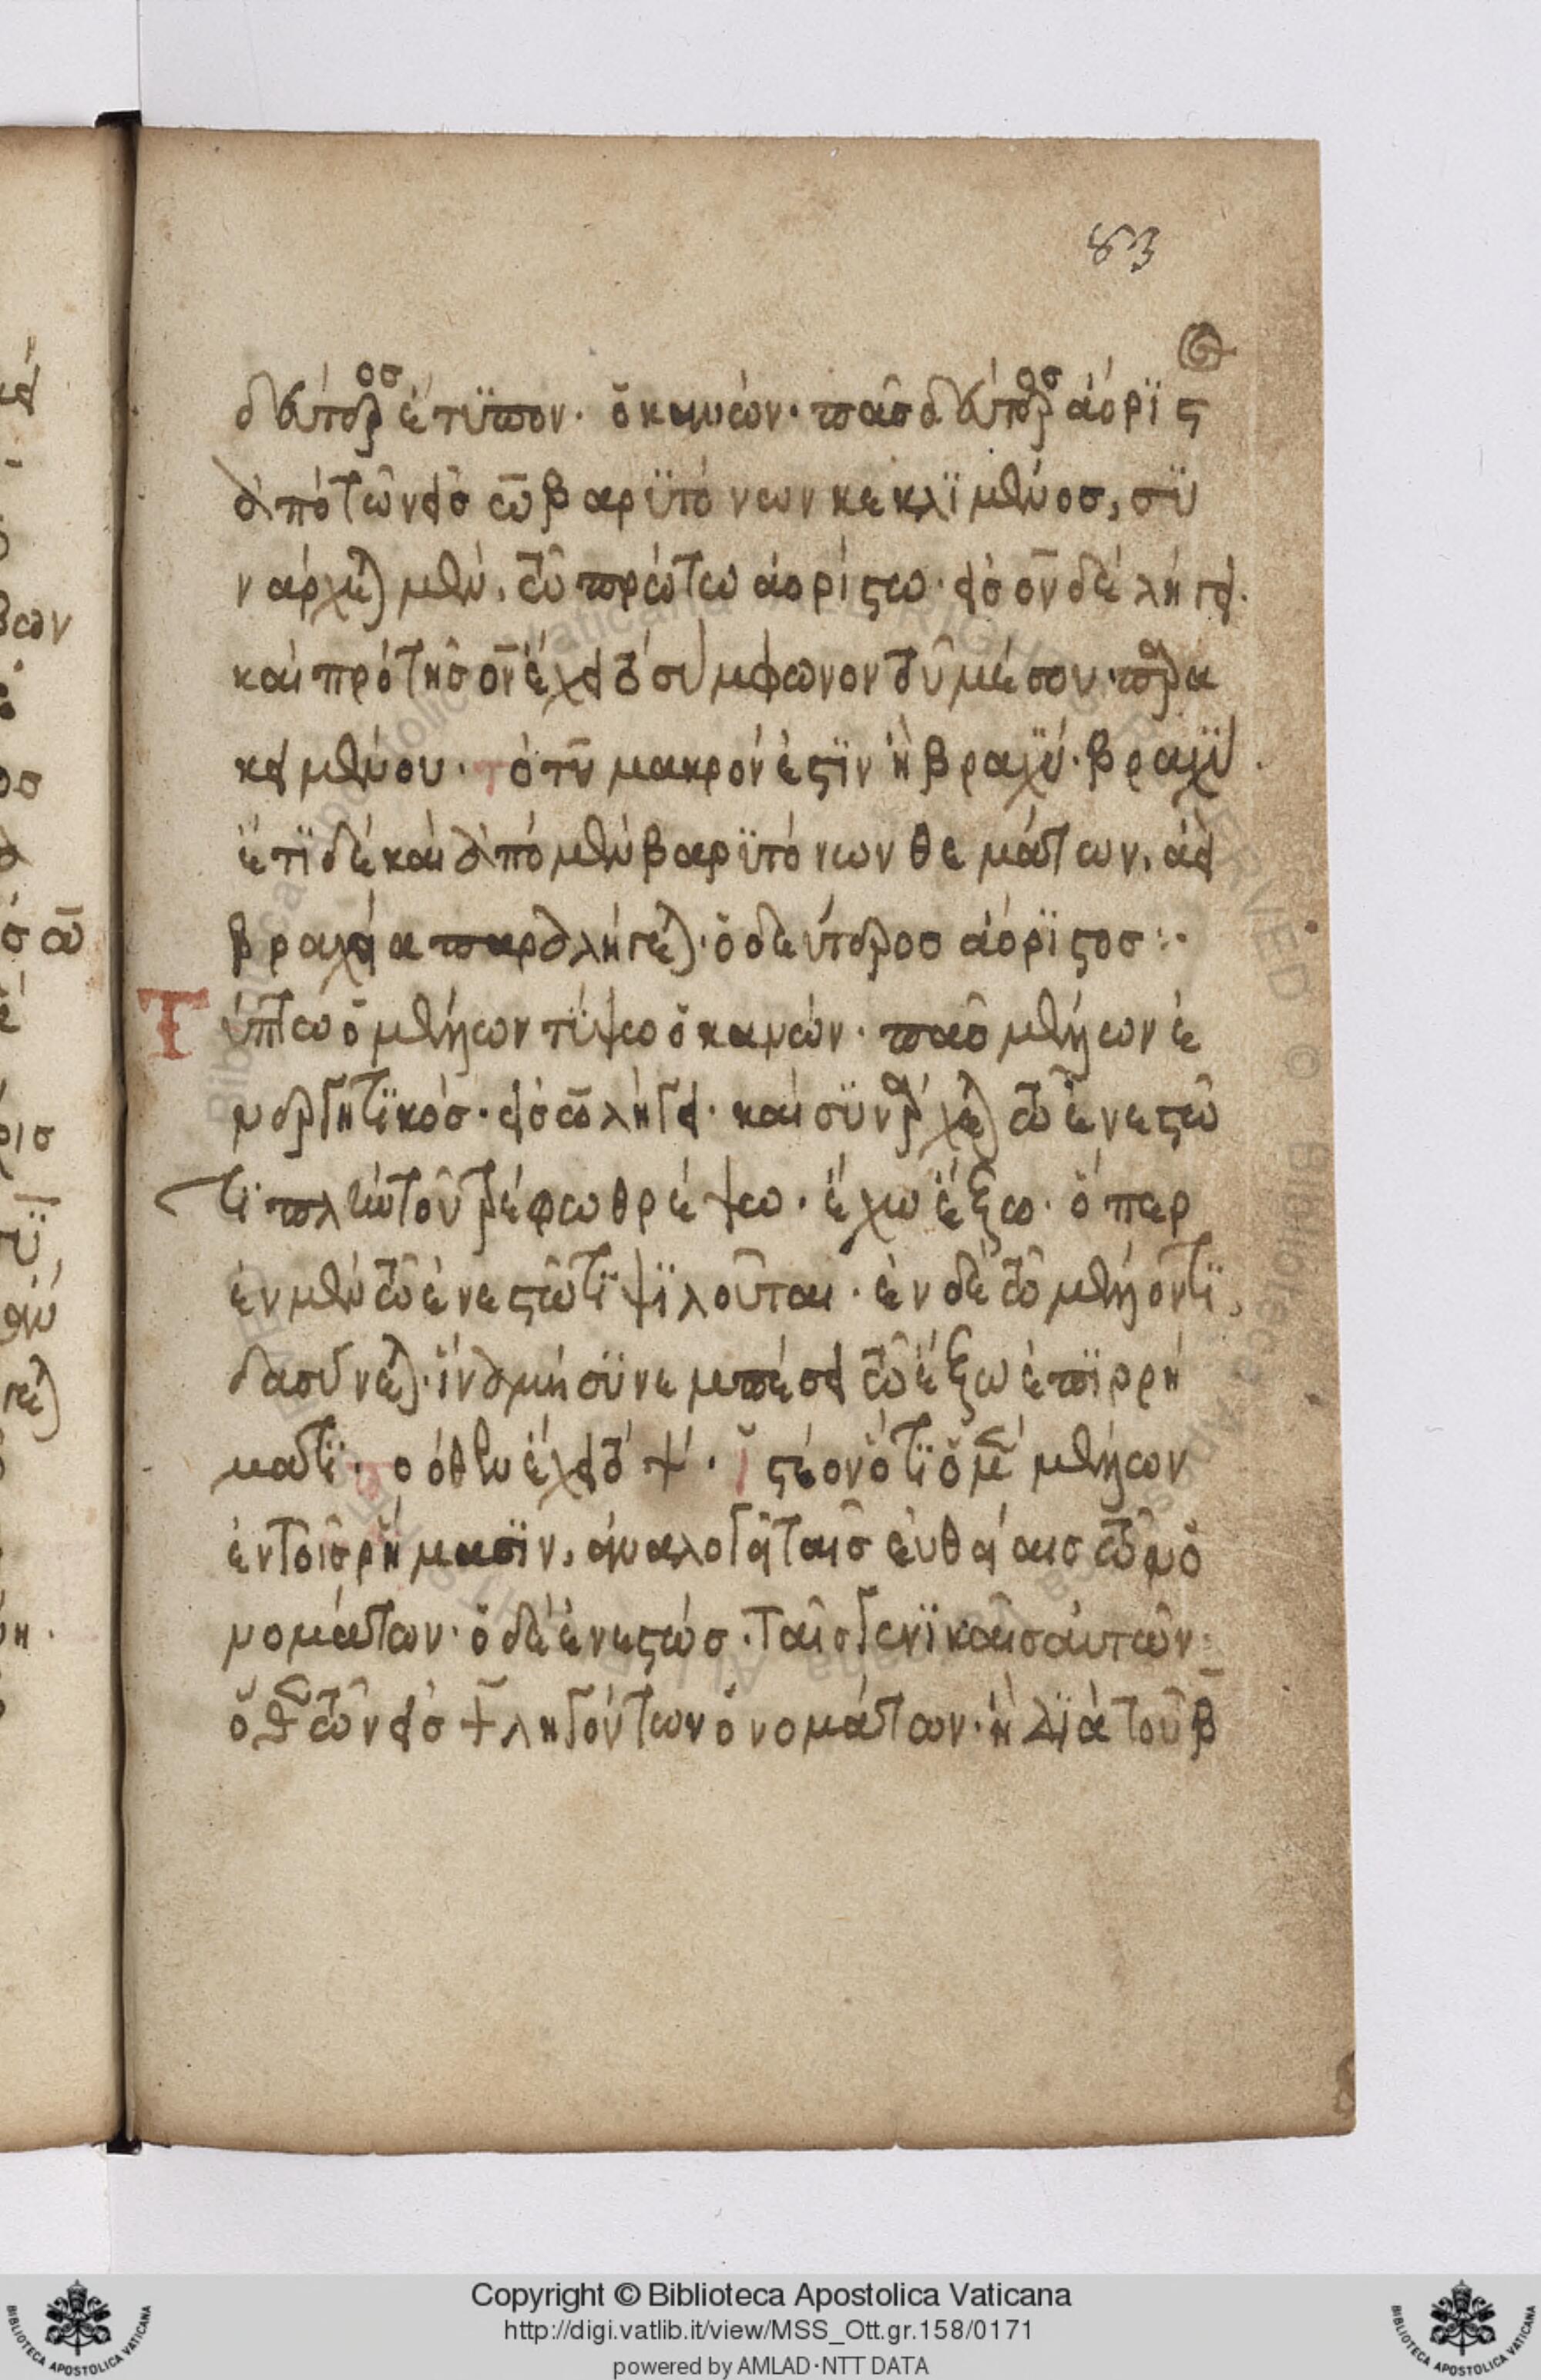 83
δεύτερος ἔτυπον. ὁ κανών. πᾶς δεύτερος ἀόριστ
ἀπὸ τῶν εἰς ω βαρυτόνων κεκλιμένος, συ
νάρχεται μὲν, τῶ πρώτω ἀορίστω. εἰς ον δὲ λήγει.
καὶ πρὸ τῆς ον ἔχει τὸ σύμφωνον τοῦ μέσου παρα
κειμένου. τὸ τυ μακρόν ἐστιν ἢ βραχύ. βραχύ.
ἐπὶ δὲ καὶ ἀπὸ μὲν βαρυτόνων θεμάτων, ἀεὶ
βραχεία παραλήγεται. ὁ δεύτερος ἀόριστος :·
Τύπτω ὁ μέλλων τύψω ὁ κανών. πᾶς μέλλων ἐ
νεργητικός. εἰς ω λήγει. καὶ συνάρχεται τῶ ἐνεστῶ
τι πλὴν τοῦ τρέφω θρέψω. ἔχω ἕξω. ὅπερ
ἐν μὲν τῶ ἐνεστῶτι ψιλοῦται. ἐν δὲ τῶ μέλλοντι,
δασύνεται. ἵνα μὴ συνεμπέσει τῶ ἔξω ἐπιρρή
ματι. πόθεν ἔχει τὸ ψ. ἰστέον ὅτι ὁ μὲν μέλλων
ἐν τοῖς ρήμασιν, ἀναλογεῖ ταῖς εὐθείαις τῶν ὀ
νομάτων. ὁ δὲ ἐνεστώς. ταῖς γενικαῖς αὐτῶν.
ὅθεν τῶν εἰς ψ ληγόντων ὀνομάτων. ἢ διὰ τοῦ β
Copyright © Biblioteca Apostolica Vaticana
http://digi.vatlib.it/view/MSS_Ott.gr.158/0171
powered by AMLAD·NTT DATA